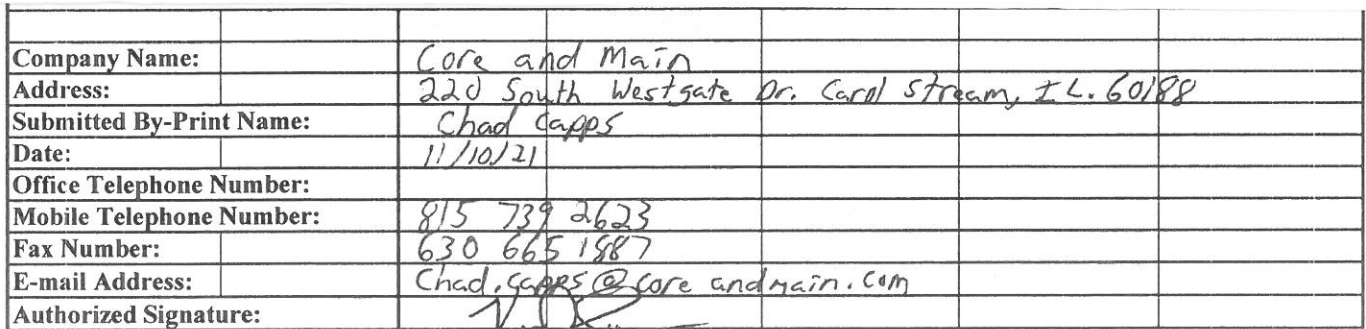 Company Name: Core and Main
Address: 220 South Westgate Dr. Carol Stream, IL. 60188
Submitted By-Print Name: Chad Capps
Date: 11/10/21
Office Telephone Number:
Mobile Telephone Number: 815 739 2623
Fax Number: 630 665 1887
E-mail Address: Chad.Capps@coreandmain.com
Authorized Signature: